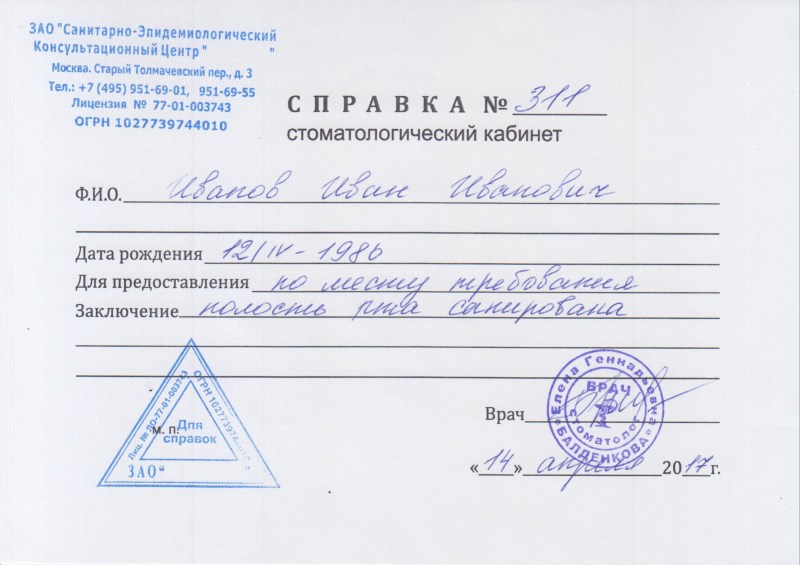 ЗАО "Санитарно-Эпидемиологический
Консультационный Центр " "
Москва. Старый Толмачевский пер., д. 3
Тел.: +7 (495) 951-69-01, 951-69-55
Лицензия № 77-01-003743
ОГРН 1027739744010
СПРАВКА № 311
стоматологический кабинет
Ф.И.О. Иванов Иван Иванович
Дата рождения 12/IV - 1986
Для предоставления по месту требования
Заключение полость рта санирована
Лиц. № ЛО-77-01-003743
ОГРН 1027739744010
Для
справок
м. п.
ЗАО "
Врач
Елена Геннадьевна
ВРАЧ
стоматолог
БАЛДЕНКОВА
«14» апреля 2017г.